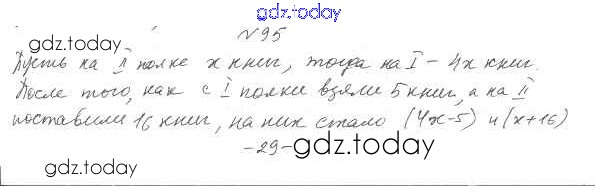 gdz.today
№95
gdz.today
Пусть на II полке x книг, тогда на I – 4x книг.
После того, как с I полки взяли 5 книг, а на II
поставили 16 книг, на них стало (4x-5) и (x+16)
-29-
gdz.today
gdz.today